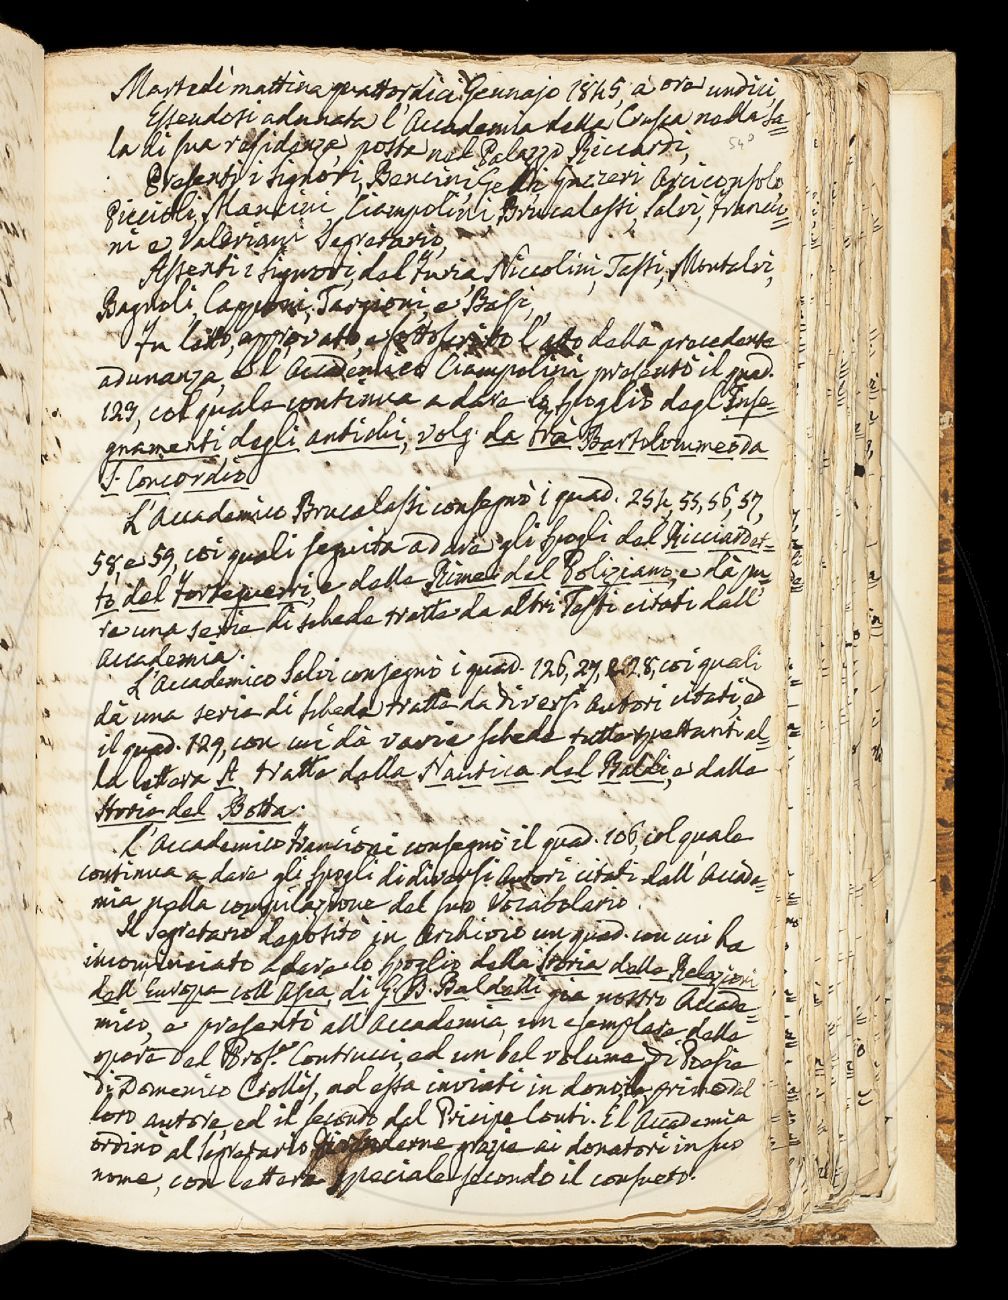 Martedì mattina quattordici Gennajo 1845, a ora undici,
Essendosi adunata l'Accademia della Crusca nella Sa=
la di sua residenza, posta nel Palazzo Riccardi,
540
Presenti i Signori, Bencini, Gelli, Gazzeri Arciconsolo,
Piccioli, Mancini, Ciampolini, Brucalassi, Salvi, Francio=
ni e Valeriani Segretario,
Assenti i Signori, del Furia, Niccolini, Tassi, Montalvi,
Bagnoli, Capponi, Targioni, e Basi,
Fu letto, approvato, e sottoscritto l'atto della precedente
adunanza, e l'Accademico Ciampolini presentò il quad.
123, col quale continua a dare lo spoglio degl'Inse=
gnamenti degli antichi, volg. da fra Bartolommeo da
S. Concordio.
L'Accademico Brucalassi consegnò i quad. 254, 55, 56, 57,
58, e 59, coi quali seguita a dare gli spogli del Ricciardet=
to del Forteguerri, e delle Rime del Poliziano, e dà pu=
re una serie di schede tratte da altri Testi citati dall'
Accademia.
L'Accademico Salvi consegnò i quad. 126, 27, e 28, coi quali
dà una serie di schede tratte da diversi Autori citati, ed
il quad. 129, con cui dà varie schede tutte spettanti al=
la lettera A, tratte dalla Nautica del Baldi, e dalla
Storia del Botta.
L'Accademico Francioni consegnò il quad. 106, col quale
continua a dare gli spogli di diversi Autori citati dall'Accade=
mia nella compilazione del suo Vocabolario.
Il Segretario depositò in Archivio un quad. con cui ha
incominciato a dare lo spoglio della Storia delle Relazioni
dell'Europa coll'Asia di G. B. Baldelli già nostro Accade=
mico, e presentò all'Accademia, un esemplare delle
opere del Prof.e Contrucci, ed un bel volume di Poesie
di Domenico ad essa inviati in dono, le prime dal
loro autore, ed il secondo dal Pricipe Conti. E l'Accademia
ordinò al Segretario di renderne grazie ai donatori in suo
nome, con lettera speciale secondo il consueto.